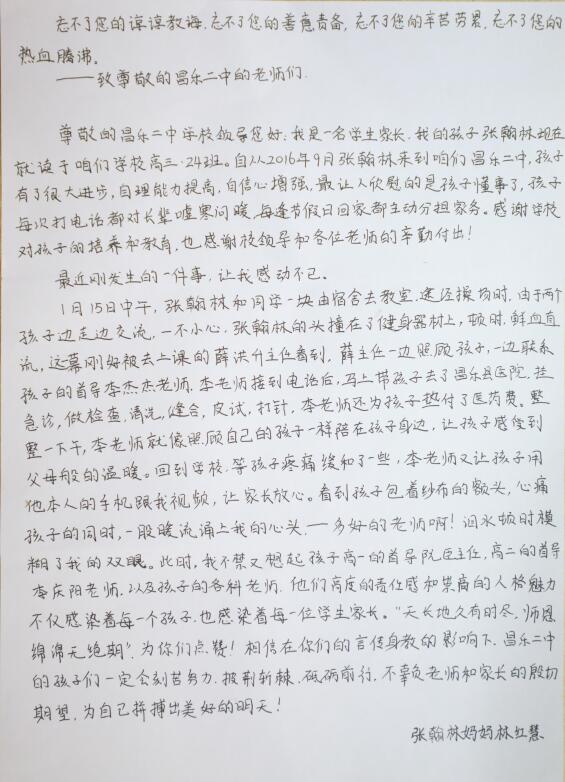 忘不了您的谆谆教诲,忘不了您的善意责备,忘不了您的辛苦劳累,忘不了您的
热血腾沸。
——致尊敬的昌乐二中的老师们.
尊敬的昌乐二中学校领导您好:我是一名学生家长,我的孩子张翰林现在
就读于咱们学校高三·24班。自从2016年9月张翰林来到咱们昌乐二中,孩子
有了很大进步,自理能力提高,自信心增强,最让人欣慰的是孩子懂事了,孩子
每次打电话都对长辈嘘寒问暖,每逢节假日回家都主动分担家务。感谢学校
对孩子的培养和教育,也感谢校领导和各位老师的辛勤付出!
最近刚发生的一件事,让我感动不已。
1月15日中午,张翰林和同学一块由宿舍去教室,途经操场时,由于两个
孩子边走边交流,一不小心,张翰林的头撞在了健身器材上,顿时,鲜血直
流,这幕刚好被去上课的薛洪升主任看到,薛主任一边照顾孩子,一边联系
孩子的首导李杰杰老师,李老师接到电话后,马上带孩子去了昌乐县医院,挂
急诊,做检查,清洗,缝合,皮试,打针,李老师还为孩子垫付了医药费。整
整一下午,李老师就像照顾自己的孩子一样陪在孩子身边,让孩子感受到
父母般的温暖。回到学校,等孩子疼痛缓和了一些,李老师又让孩子用
他本人的手机跟我视频,让家长放心。看到孩子包着纱布的额头,心痛
孩子的同时,一股暖流涌上我的心头,—多好的老师啊!泪水顿时模
糊了我的双眼。此时,我不禁又想起孩子高一的首导阮臣主任,高二的首导
李庆阳老师,以及孩子的各科老师,他们高度的责任感和崇高的人格魅力
不仅感染着每一个孩子,也感染着每一位学生家长。“天长地久有时尽,师恩
绵绵无绝期”,为你们点赞!相信在你们的言传身教的影响下,昌乐二中
的孩子们一定会刻苦努力,披荆斩棘,砥砺前行,不辜负老师和家长的殷切
期望,为自己拼搏出美好的明天!
张翰林妈妈林红慧